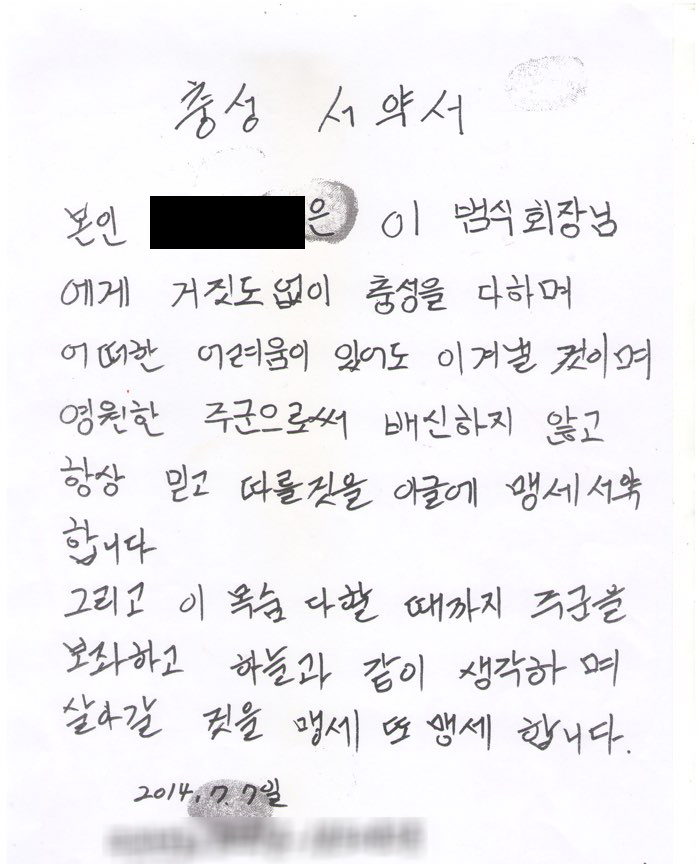 충성 서약서
본인 은 이 범식회장님
에게 거짓도없이 충성을 다하며
어떠한 어려움이 있어도 이겨낼 것이며
영원한 주군으로써 배신하지 않고
항상 믿고 따를것을 이글에 맹세서약
합니다
그리고 이 목숨 다할 때까지 주군을
보좌하고 하늘과 같이 생각하며
살아갈 것을 맹세 또 맹세 합니다.
2014. 7. 7일